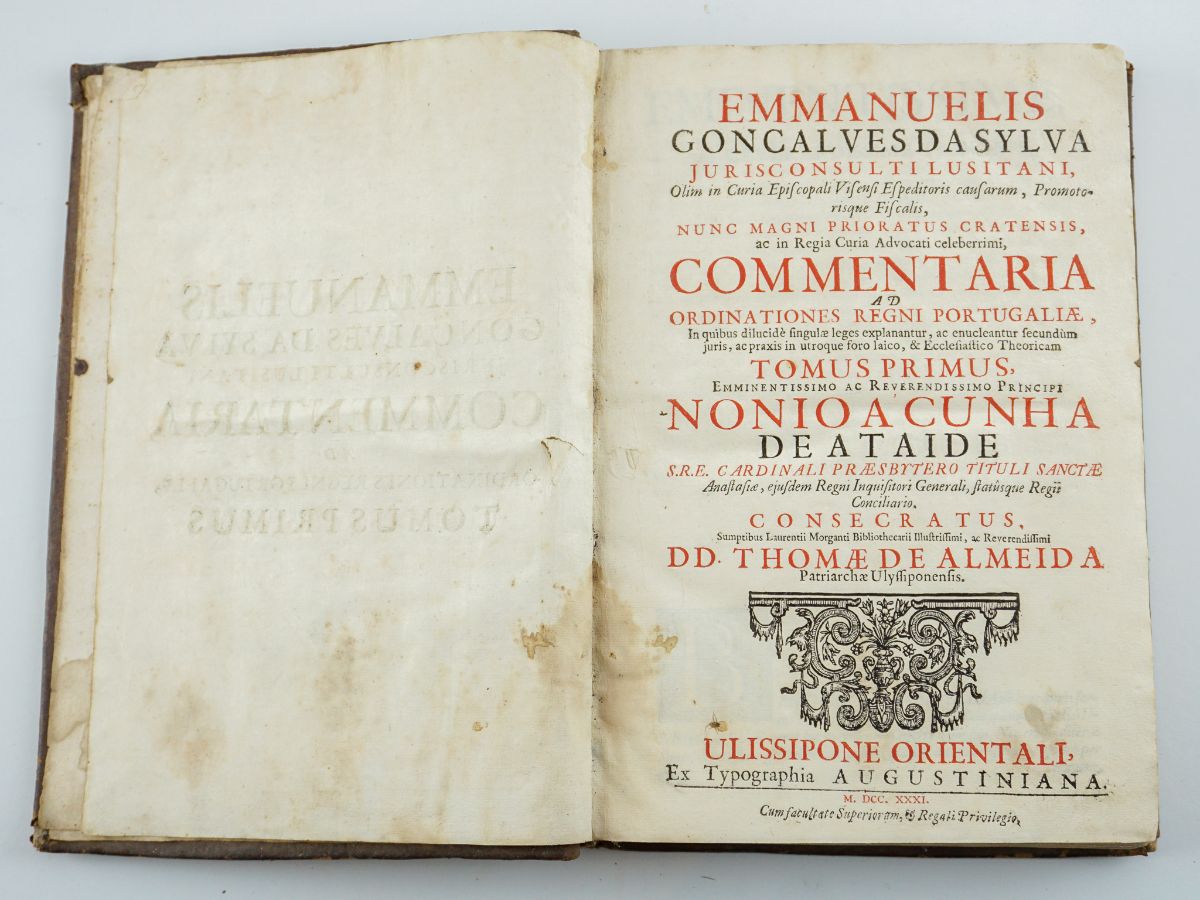 EMMANUELIS
GONCALVES DA SYLVA
JURISCONSULTI LUSITANI,
Olim in Curia Epiſcopali Viſenſi Eſpeditoris cauſarum, Promoto-
risque Fiſcalis,
NUNC MAGNI PRIORATUS CRATENSIS,
ac in Regia Curia Advocati celeberrimi,
COMMENTARIA
AD
ORDINATIONES REGNI PORTUGALIÆ,
In quibus dilucidè ſingulæ leges explanantur, ac enucleantur ſecundùm
juris, ac praxis in utroque foro laico, & Eccleſiaſtico Theoricam
TOMUS PRIMUS,
EMMINENTISSIMO AC REVERENDISSIMO PRINCIPI
NONIO A CUNHA
DE ATAIDE
S.R.E. CARDINALI PRÆSBYTERO TITULI SANCTÆ
Anaſtaſiæ, ejuſdem Regni Inquiſitori Generali, ſtatûsque Regii
Conciliario,
CONSECRATUS,
Sumptibus Laurentii Morganti Bibliothecarii Illuſtriſſimi, ac Reverendiſſimi
DD. THOMÆ DE ALMEIDA
Patriarchæ Ulyſſiponenſis.
ULISSIPONE ORIENTALI,
Ex Typographia AUGUSTINIANA.
M. DCC. XXXI.
Cum facultate Superiorum, & Regali Privilegio,
EMMANUELIS
GONÇALVES DA SYLVA
JURISCONSULTI LUSITANI
COMMENTARIA
AD
ORDINATIONES REGNI PORTUGALIÆ,
TOMUS PRIMUS